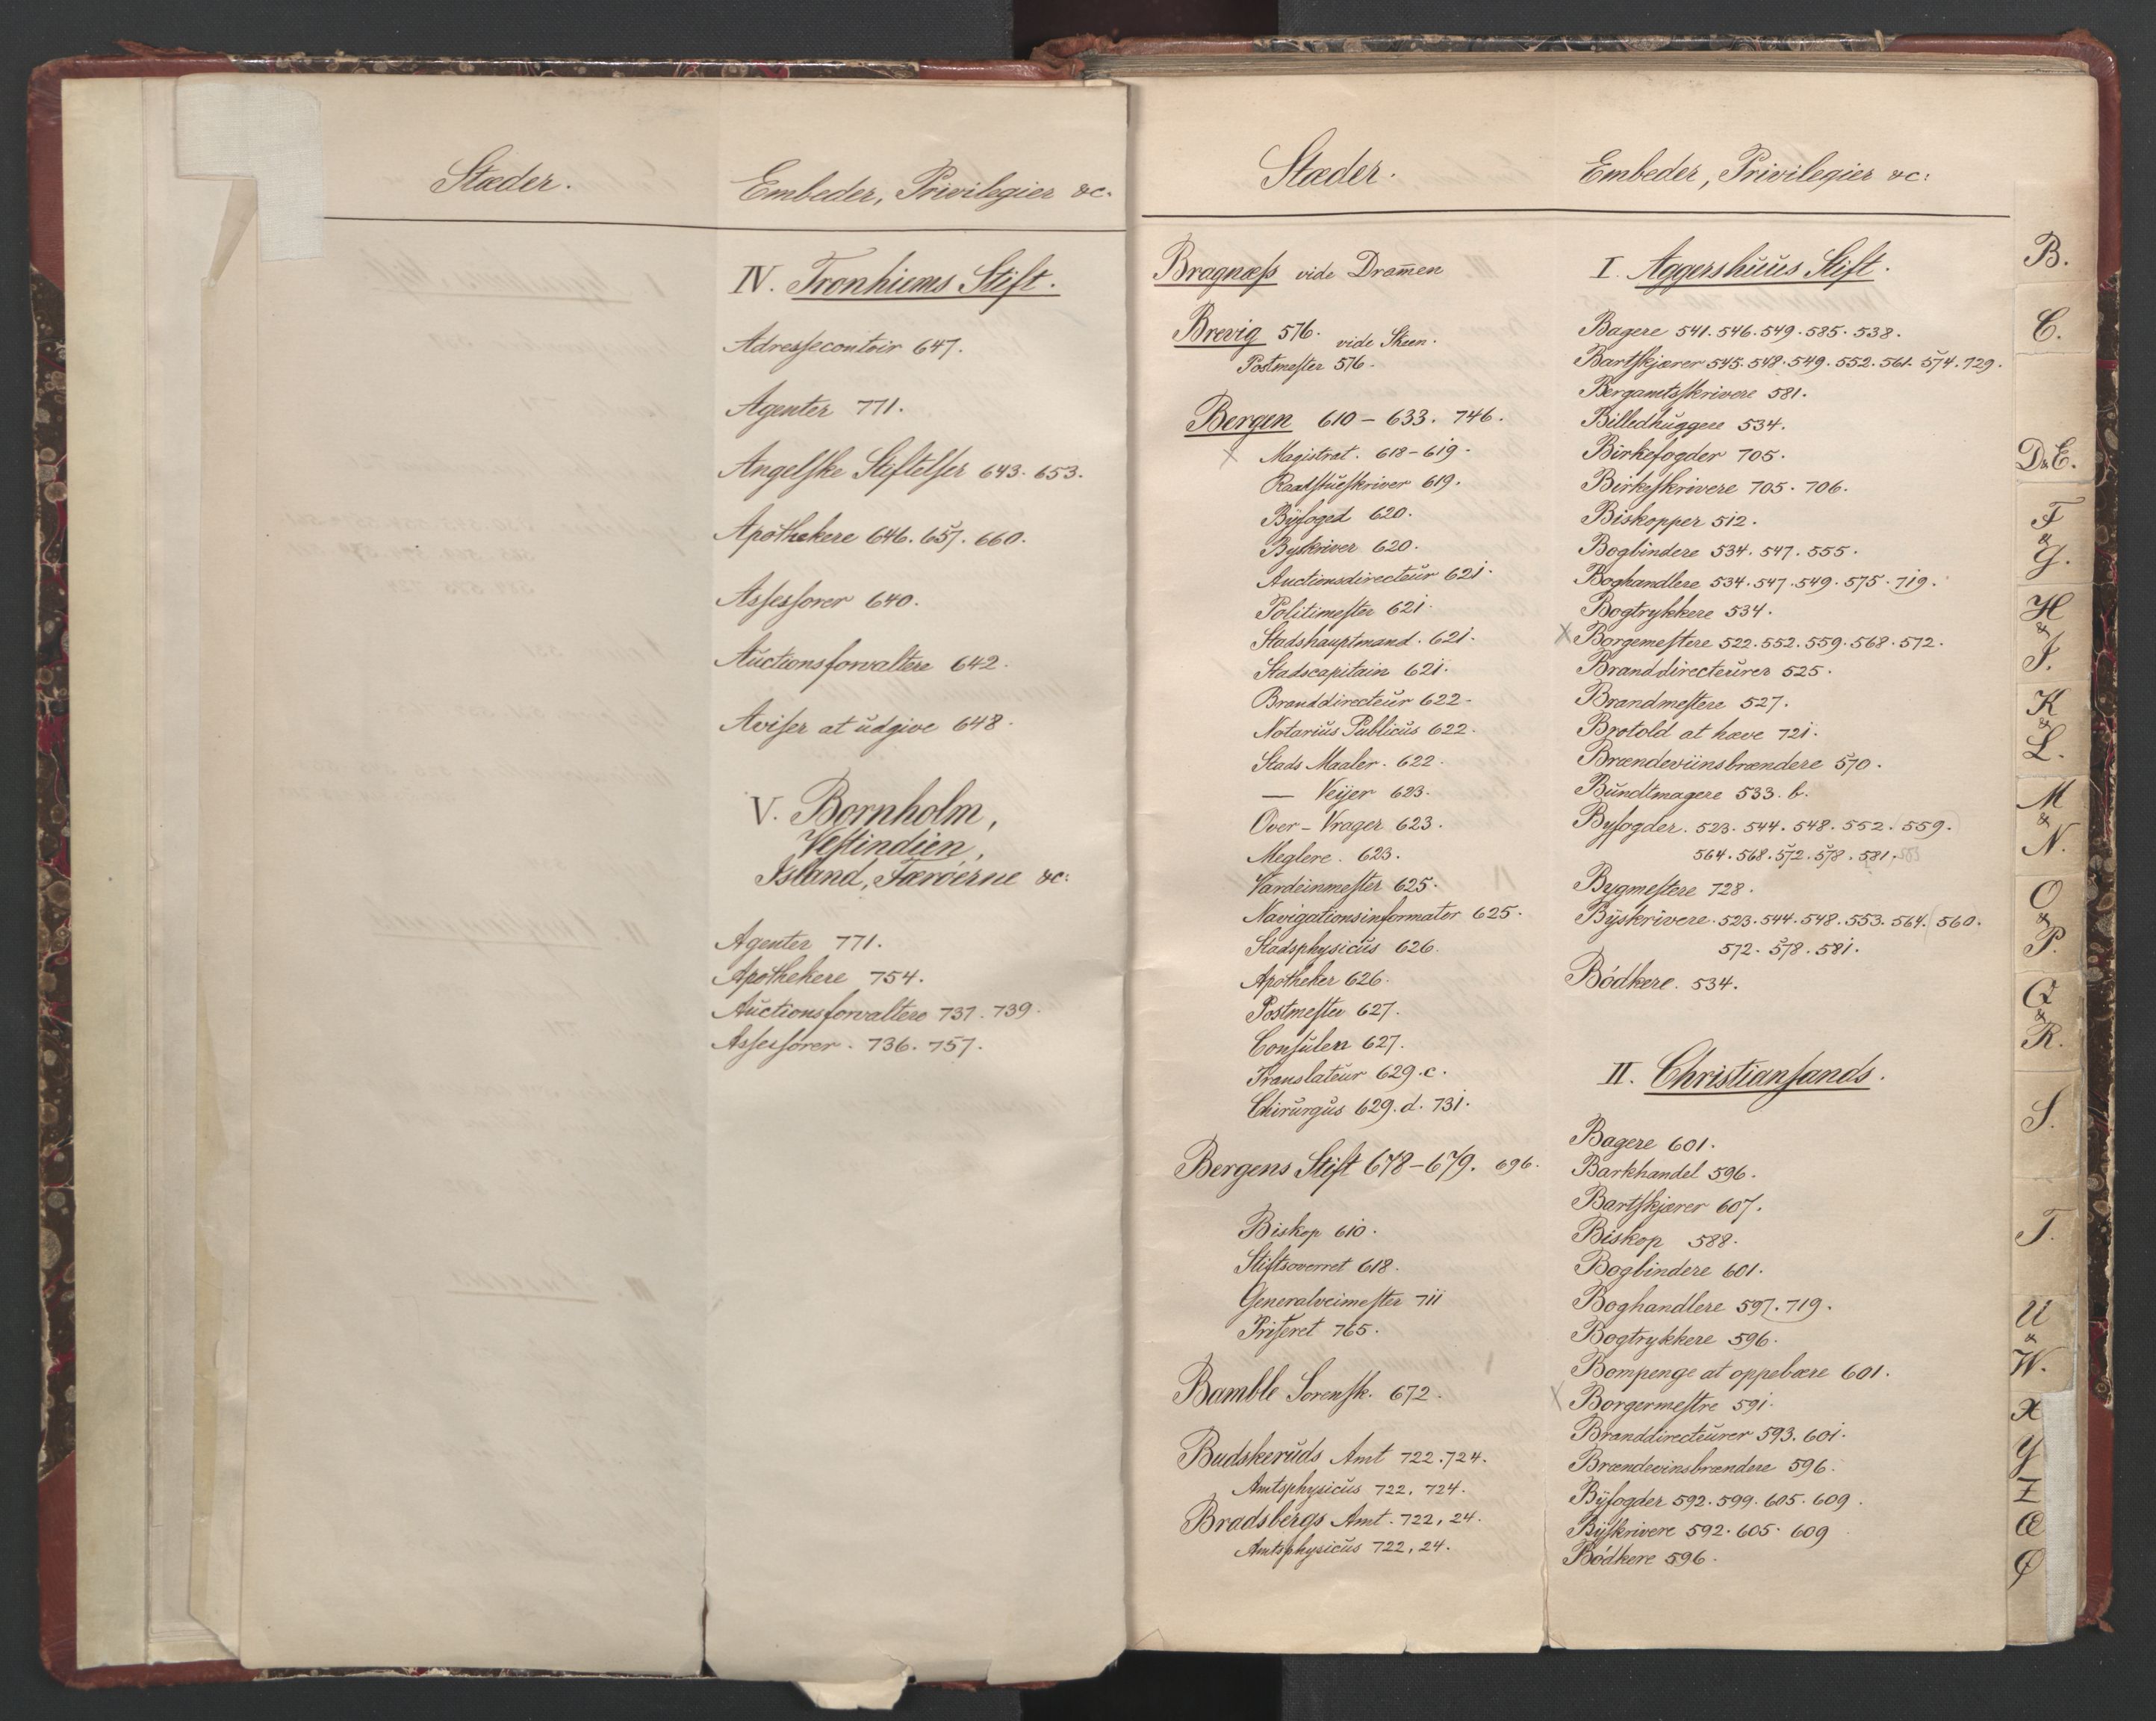 Stæder.
Embeder, Privilegier &c.
IV. Tronhiems Stift.
Adressecontoir 647.
Agenter 771.
Angelske Stiftelser 643. 653.
Apothekere 646. 657. 660.
Assessorer 640.
Auctionsforvaltere 642.
Aviser at udgive 648.
V. Bornholm,
Vestindien,
Island, Færöerne &c:
Agenter 771.
Apothekere 754.
Auctionsforvaltere 737. 739.
Assessorer. 736. 757.
Stæder.
Bragnæss vide Dram̄en
Brevig 576. vide Skeen.
Postmester 576.
Bergen 610 – 633. 746.
Magistrat. 618–619.
Raadstueskriver 619.
Byfoged 620.
Byskriver 620.
Auctionsdirecteur 621.
Politimester 621.
Stadshauptmand. 621.
Stadscapitain 621.
Branddirecteur 622.
Notarius Publicus 622.
Stads Maaler. 622.
— Veijer 623.
Over-Vrager 623.
Meglere. 623.
Vardeinmester 625.
Navigationsinformator 625.
Stadsphysicus 626.
Apotheker 626.
Postmester 627.
Consuler 627.
Translateur 629.c.
Chirurgus 629.d. 731.
Bergens Stift 678–679. 696.
Biskop 610.
Stiftsoverret 618.
Generalveimester 711
Priseret 765.
Bamble Sorensk. 672.
Budskeruds Amt 722.724.
Amtsphysicus 722. 724.
Bradsbergs Amt. 722, 24.
Amtsphysicus 722, 24.
Embeder, Privilegier &c:
I. Aggershuus Stift.
Bagere 541. 546. 549. 585. 538.
Bartskjærer 545. 548. 549. 552. 561. 574. 729.
Bergamtsskrivere 581.
Billedhuggere 534.
Birkefogder 705.
Birkeskrivere 705. 706.
Biskopper 512.
Bogbindere 534. 547. 555.
Boghandlere 534. 547. 549. 575. 719.
Bogtrykkere 534.
X Borgemestere 522. 552. 559. 568. 572.
Branddirecteurer 525.
Brandmestere 527.
Brotold at hæve 721.
Brændeviinsbrændere 570.
Bundtmagere 533. b.
Byfogder. 523. 544. 548. 552. (559.)
564. 568. 572. 578. 581.
Bygmestere 728.
Byskrivere. 523. 544. 548. 553. 564. (560.
572. 578. 581.
Bödkere. 534.
II. Christiansands.
Bagere 601.
Barkhandel 596.
Bartskjærer 607.
Biskop 588.
Bogbindere 601.
Boghandlere 597. 719.
Bogtrykkere 596.
Bompenge at oppebære 601.
X Borgermestre 591.
Branddirecteurer 593. 601.
Brændevinsbrændere 596.
Byfogder 592. 599. 605. 609.
Byskrivere 592. 605. 609
Bödkere 596.
B.
C.
D & E.
F
&
G.
H
&
I.
K
&
L.
M
&
N.
O
&
P.
Q
&
R.
S.
T.
U
&
W.
X
Y
Z
Æ
Ø